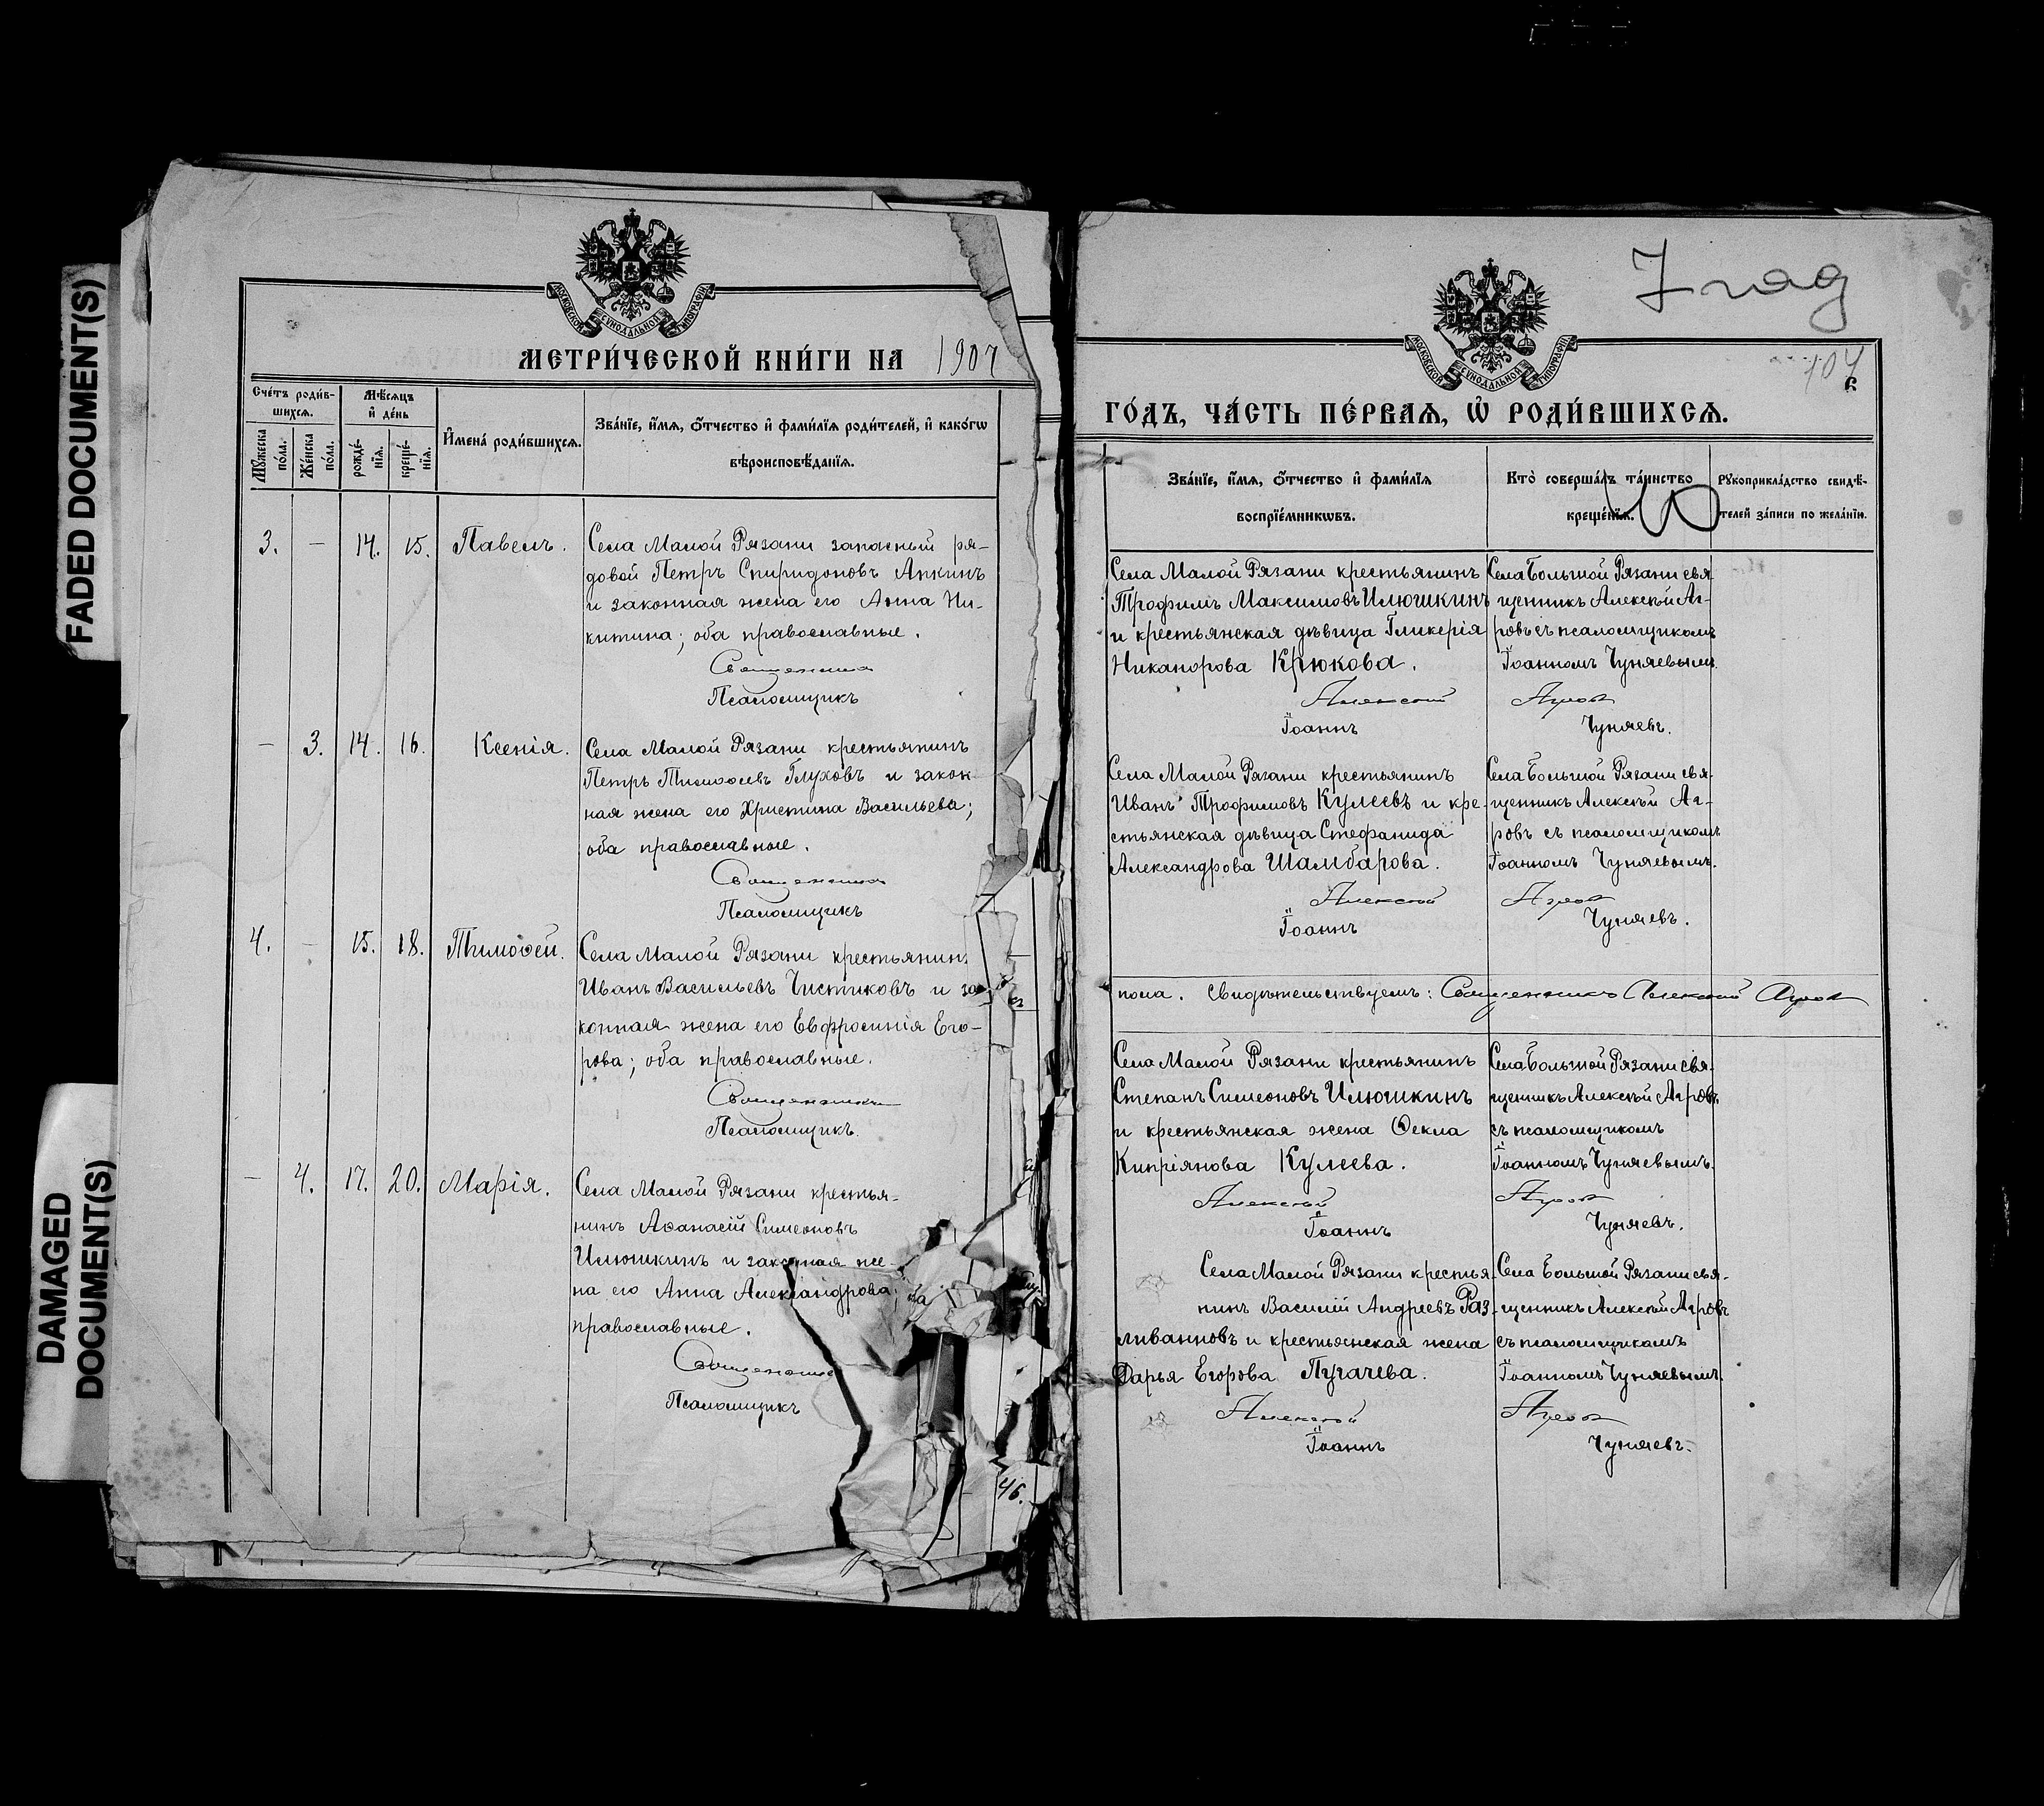 FADED DOCUMENT(S)
DAMAGED
DOCUMENT(S)
МОСКОВСКОЙ СѴНОДАЛЬНОЙ ТИПОГРАФІИ
МЕТРИ́ЧЕСКОЙ КНИ́ГИ НА 1907
Сче́тъ роди́в-
шихся.
Мѣ́сяцъ
и҆ де́нь
Мꙋ́жеска
по́ла.
Же́нска
по́ла.
рожде́-
нїѧ.
креще́-
нїѧ.
И҆мена̀ роди́вшихсѧ.
Зва́нїе, и҆́мѧ, ѻ҆́тчество и҆ фами́лїѧ роди́телей, и҆ како́гѡ
вѣроисповѣ́данїѧ.
3. — 14. 15. Павелъ.
Села Малой Рязани запасный ря-
довой Петръ Спиридоновъ Апкинъ
и законная жена его Анна Ни-
китина; оба православные.
Священникъ
Псаломщикъ
— 3. 14. 16. Ксенія.
Села Малой Рязани крестьянинъ
Петръ Тимоѳеевъ Глуховъ и закон
ная жена его Христина Васильева;
оба православные.
Священникъ
Псаломщикъ
4. — 15. 18. Тимоѳей.
Села Малой Рязани крестьянинъ
Иванъ Васильевъ Чистиковъ и за
конная жена его Евфросинія Его-
рова; оба православные.
Священникъ
Псаломщикъ.
— 4. 17. 20. Марія.
Села Малой Рязани крестья-
нинъ Аѳанасій Симеоновъ
Илюшкинъ и законная же-
на его Анна Александрова;
православные.
Священник
Псаломщикъ
46.
7 гяд
МОСКОВСКОЙ СѴНОДАЛЬНОЙ ТИПОГРАФІИ
ГО́ДЪ, ЧА́СТЬ ПЕ́РВАѦ, Ѡ҆ РОДИ́ВШИХСѦ.
Зва́нїе, и҆́мѧ, ѻ҆́тчество и҆ фами́лїѧ
воспрїе́мникѡвъ.
Кто̀ соверша́лъ та́инство
креще́нїѧ.
Рꙋкоприкла́дство свидѣ́-
телей за́писи по жела́нїю.
Села Малой Рязани крестьянинъ
Трофимъ Максимовъ Илюшкинъ
и крестьянская дѣвица Гликерія
Никанорова Крюкова.
Алексѣй
Іоаннъ
Села Большой Рязани свя
щенникъ Алексѣй Аг-
ровъ съ псаломщикомъ
Іоанномъ Чуняевымъ.
Агровъ
Чуняевъ.
Села Малой Рязани крестьянинъ
Иванъ Трофимовъ Кулеевъ и кре-
стьянская дѣвица Стефанида
Александрова Шамбарова.
Алексѣй
Іоаннъ
Села Большой Рязани свя-
щенникъ Алексѣй Аг-
ровъ съ псаломщикомъ
Іоанномъ Чуняевымъ.
Агровъ
Чуняевъ.
пола. Свидѣтельствуемъ: Священникъ Алексѣй Агровъ
Села Малой Рязани крестьянинъ
Степанъ Симеоновъ Илюшкинъ
и крестьянская жена Ѳекла
Кипріянова Кулеева.
Алексѣй
Іоаннъ
Села Большой Рязани свя-
щенникъ Алексѣй Агровъ
съ псаломщикомъ
Іоанномъ Чуняевымъ.
Агровъ
Чуняевъ.
Села Малой Рязани крестья-
нинъ Василій Андреевъ Раз-
ливановъ и крестьянская жена
Дарья Егорова Пугачева.
Алексѣй
Іоаннъ
Села Большой Рязани свя-
щенникъ Алексѣй Агровъ
съ псаломщикомъ
Іоанномъ Чуняевымъ.
Агровъ
Чуняевъ.